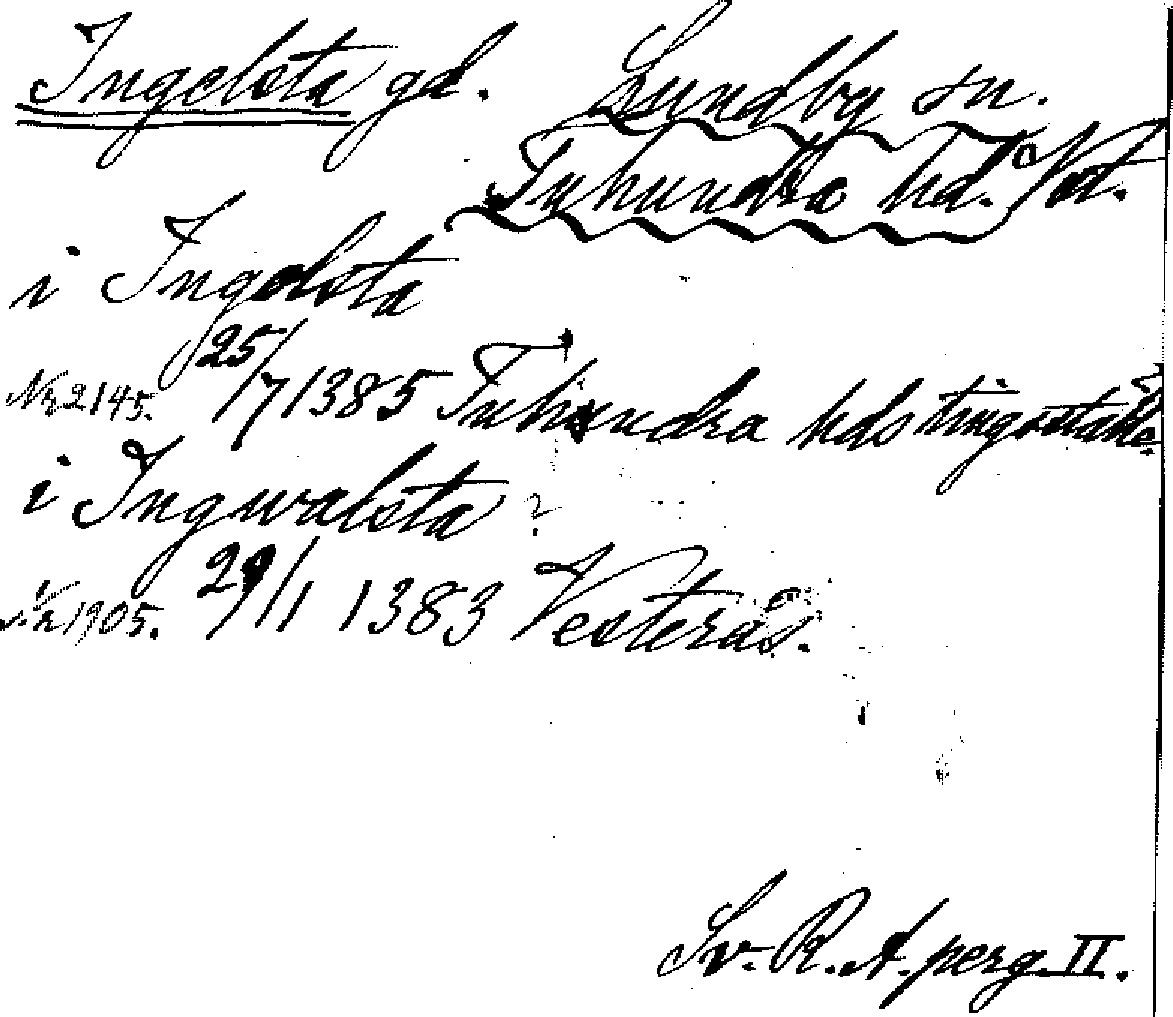 Ingelsta gd. Lundby sn.
Tuhundra hd. Vst.
i Ingolsta
Nr 2145. 25/7 1385 Tuhundra hds tingställe.
i Ingwalsta ?
Nr 1905. 29/1 1383 Vesterås.
Sv. R. A. perg. II.